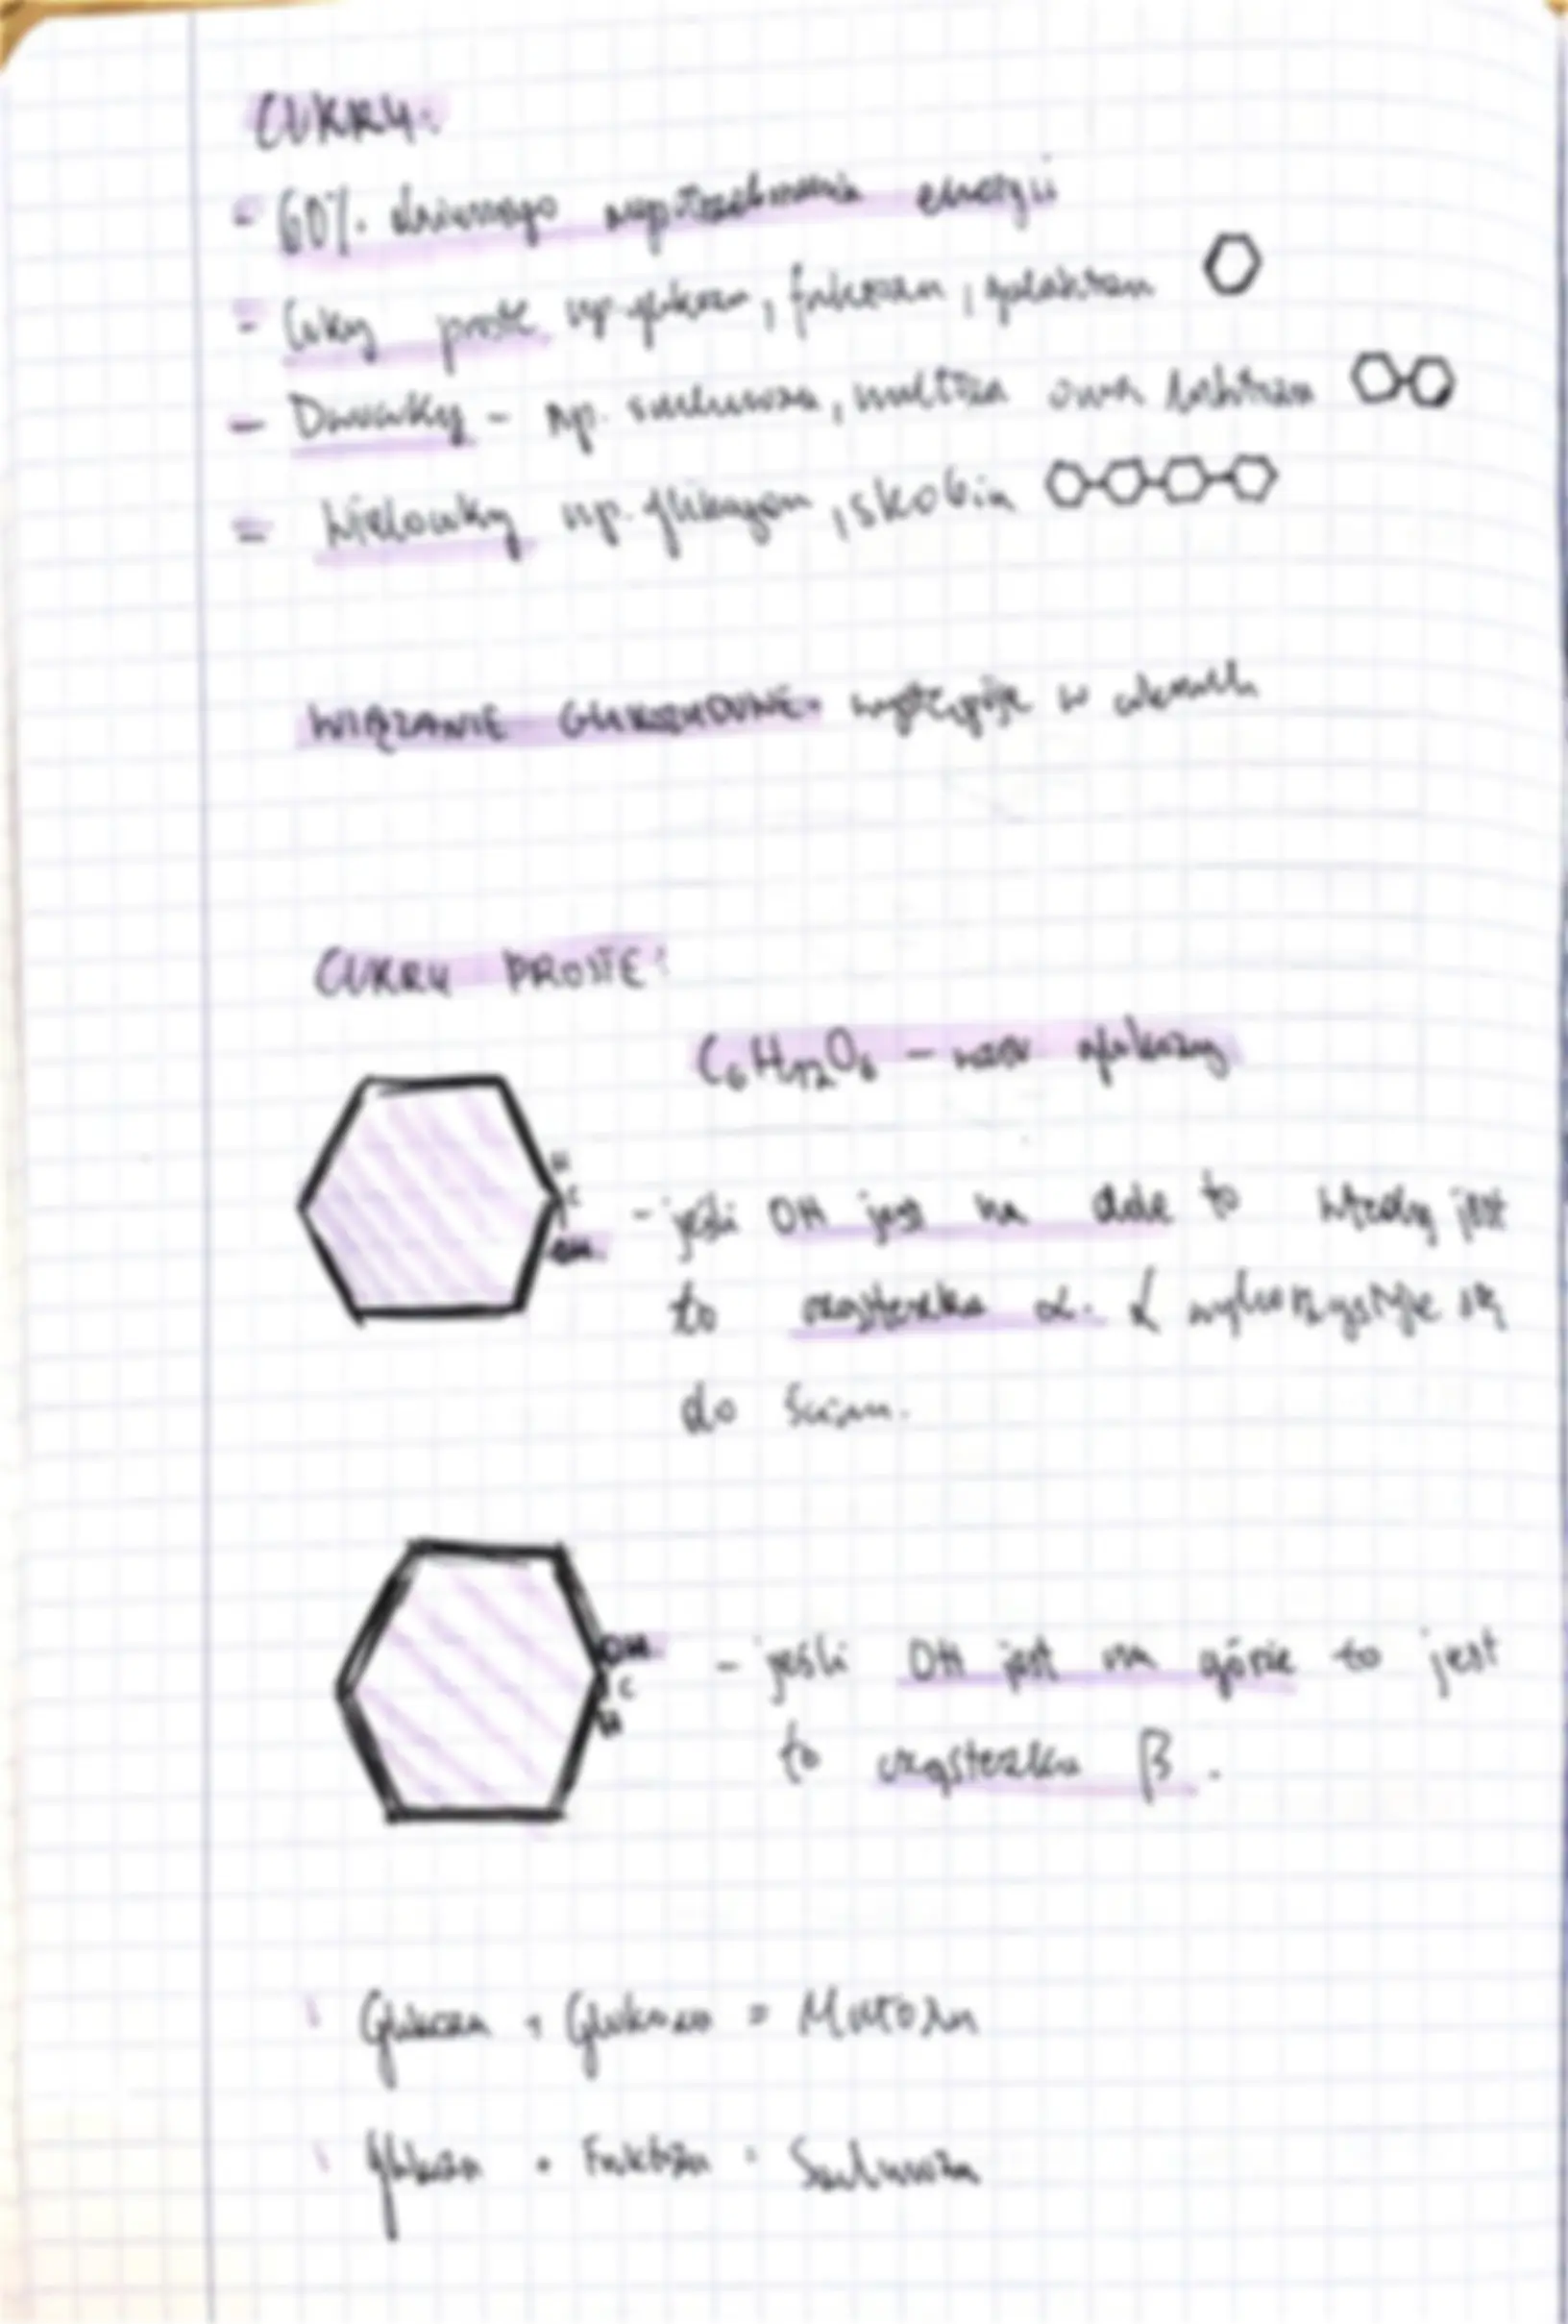 CUKRY:
- 60% dziennego zapotrzebowania energii
- Cukry proste np. glukoza, fruktoza, galaktoza
- Dwucukry - np. sacharoza, maltoza oraz laktoza
- Wielocukry np. glikogen, skrobia
WIĄZANIE GLIKOZYDOWE: występuje w cukrach
CUKRY PROSTE:
C6H12O6 - wzór glukozy
H
C
OH
- jeśli OH jest na dole to wtedy jest
to cząsteczka α. α wykorzystuje się
do ścian.
OH
C
H
- jeśli OH jest na górze to jest
to cząsteczka β.
Glukoza + Glukoza = Maltoza
Glukoza + Fruktoza = Sacharoza